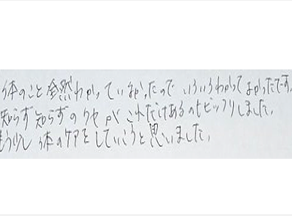 体のこと全然わかっていなかったのでいろいろわかってよかったです。
知らず知らずのクセがこれだけあるのもビックリしました。
もう少し体のケアをしていこうと思いました。